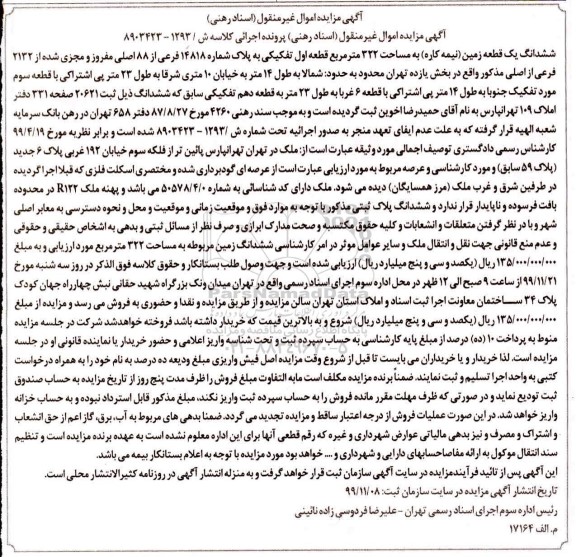 آگهی مزایده اموال غیرمنقول (اسناد رهنی)
آگهی مزایده اموال غیرمنقول (اسناد رهنی) پرونده اجرائی کلاسه ش / ۱۲۹۳ - ۸۹۰۳۴۲۳
ششدانگ یک قطعه زمین (نیمه کاره) به مساحت ۳۲۲ مترمربع قطعه اول تفکیکی به پلاک شماره ۱۴۸۱۸ فرعی از ۸۸ اصلی مفروز و مجزی شده از ۲۱۳۲
فرعی از اصلی مذکور واقع در بخش یازده تهران محدود به حدود: شمالا به طول ۱۴ متر به خیابان ۱۰ متری شرقا به طول ۲۳ متر پی اشتراکی با قطعه سوم
مورد تفکیک جنوبا به طول ۱۴ متر پی اشتراکی با قطعه ۶ غربا به طول ۲۳ متر به قطعه دهم تفکیکی سابق که ششدانگ ذیل ثبت ۲۰۶۲۱ صفحه ۳۳۱ دفتر
املاک ۱۰۹ تهرانپارس به نام آقای حمیدرضا اخوین ثبت گردیده است و به موجب سند رهنی ۴۲۶۰ مورخ ۸۷/۸/۲۷ دفتر ۶۵۸ تهران در رهن بانک سرمایه
شعبه الهیه قرار گرفته که به علت عدم ایفای تعهد منجر به صدور اجرائیه تحت شماره ش /۱۲۹۳- ۸۹۰۳۴۲۳ شده است و برابر نظریه مورخ ۹۹/۴/۱۹
کارشناس رسمی دادگستری توصیف اجمالی مورد وثیقه عبارت است از: ملک در تهران تهرانپارس پائین تر از فلکه سوم خیابان ۱۹۲ غربی پلاک ۶ جدید
(پلاک ۵۹ سابق) و مورد کارشناسی و عرصه مربوط به مورد ارزیابی عبارت است از عرصه ای گودبرداری شده و مختصری اسکلت فلزی که قبلا اجرا گردیده
در طرفین شرق و غرب ملک (مرز همسایگان) دیده می شود. ملک دارای کد شناسائی به شماره ۵۰۵۷۸/۴/۰ می باشد و پهنه ملک R۱۲۲ در محدوده
بافت فرسوده و ناپایدار قرار ندارد و ششدانگ پلاک ثبتی مذکور با توجه به موارد فوق و موقعیت زمانی و موقعیت و محل و نحوه دسترسی به معابر اصلی
شهر و با در نظر گرفتن متعلقات و انشعابات و کلیه حقوق مکتسبه و صحت مدارک ابرازی و صرف نظر از مسائل ثبتی و بدهی به اشخاص حقیقی و حقوقی
و عدم منع قانونی جهت نقل و انتقال ملک و سایر عوامل موثر در امر کارشناسی ششدانگ زمین مربوطه به مساحت ۳۲۲ مترمربع مورد ارزیابی و به مبلغ
۱۳۵/۰۰۰/۰۰۰/۰۰۰ ریال (یکصد و سی و پنج میلیارد ریال) ارزیابی شده است و جهت وصول طلب بستانکار و حقوق کلاسه فوق الذکر در روز سه شنبه مورخ
۹۹/۱۱/۲۱ از ساعت ۹ صبح الی ۱۲ ظهر در محل اداره سوم اجرای اسناد رسمی واقع در تهران میدان ونک بزرگراه شهید حقانی نبش چهارراه جهان کودک
پلاک ۳۴ ساختمان معاونت اجرا ثبت اسناد و املاک استان تهران سالن مزایده و از طریق مزایده و نقدا و حضوری به فروش می رسد و مزایده از مبلغ
۱۳۵/۰۰۰/۰۰۰/۰۰۰ ریال (یکصد و سی و پنج میلیارد ریال) شروع و به بالاترین قیمت که خریدار داشته باشد فروخته خواهد شد شرکت در جلسه مزایده
منوط به پرداخت ۱۰ (ده) درصد از مبلغ پایه کارشناسی به حساب سپرده ثبت و تحت شناسه واریز اعلامی و حضور خریدار یا نماینده قانونی او در جلسه
مزایده است. لذا خریدار و یا خریداران می بایست تا قبل از شروع وقت مزایده اصل فیش واریزی مبلغ ودیعه ده درصد به نام خود را به همراه درخواست
کتبی به واحد اجرا تسلیم و ثبت نمایند. ضمنا برنده مزایده مکلف است مابه التفاوت مبلغ فروش را ظرف مدت پنج روز از تاریخ مزایده به حساب صندوق
ثبت تودیع نماید و در صورتی که ظرف مهلت مقرر مانده فروش را به حساب سپرده ثبت واریز نکند، مبلغ مذکور قابل استرداد نبوده و به حساب خزانه
واریز خواهد شد. در این صورت عملیات فروش از درجه اعتبار ساقط و مزایده تجدید می گردد. ضمنا بدهی های مربوط به آب، برق، گاز اعم از حق انشعاب
و اشتراک و مصرف و نیز بدهی مالیاتی عوارض شهرداری و غیره که رقم قطعی آنها برای این اداره معلوم نشده است به عهده برنده مزایده است و تنظیم
سند انتقال موکول به ارائه مفاصاحسابهای دارایی و شهرداری و .... خواهد بود مورد مزایده با توجه به اعلام بستانکار بیمه می باشد.
این آگهی پس از تائید فرآیندمزایده در سایت آگهی سازمان ثبت قرار خواهد گرفت و به منزله انتشار آگهی در روزنامه کثیرالانتشار محلی است.
تاریخ انتشار آگهی مزایده در سایت سازمان ثبت: ۹۹/۱۱/۰۸
رئیس اداره سوم اجرای اسناد رسمی تهران - علیرضا فردوسی زاده نائینی
م. الف ۱۷۱۶۴